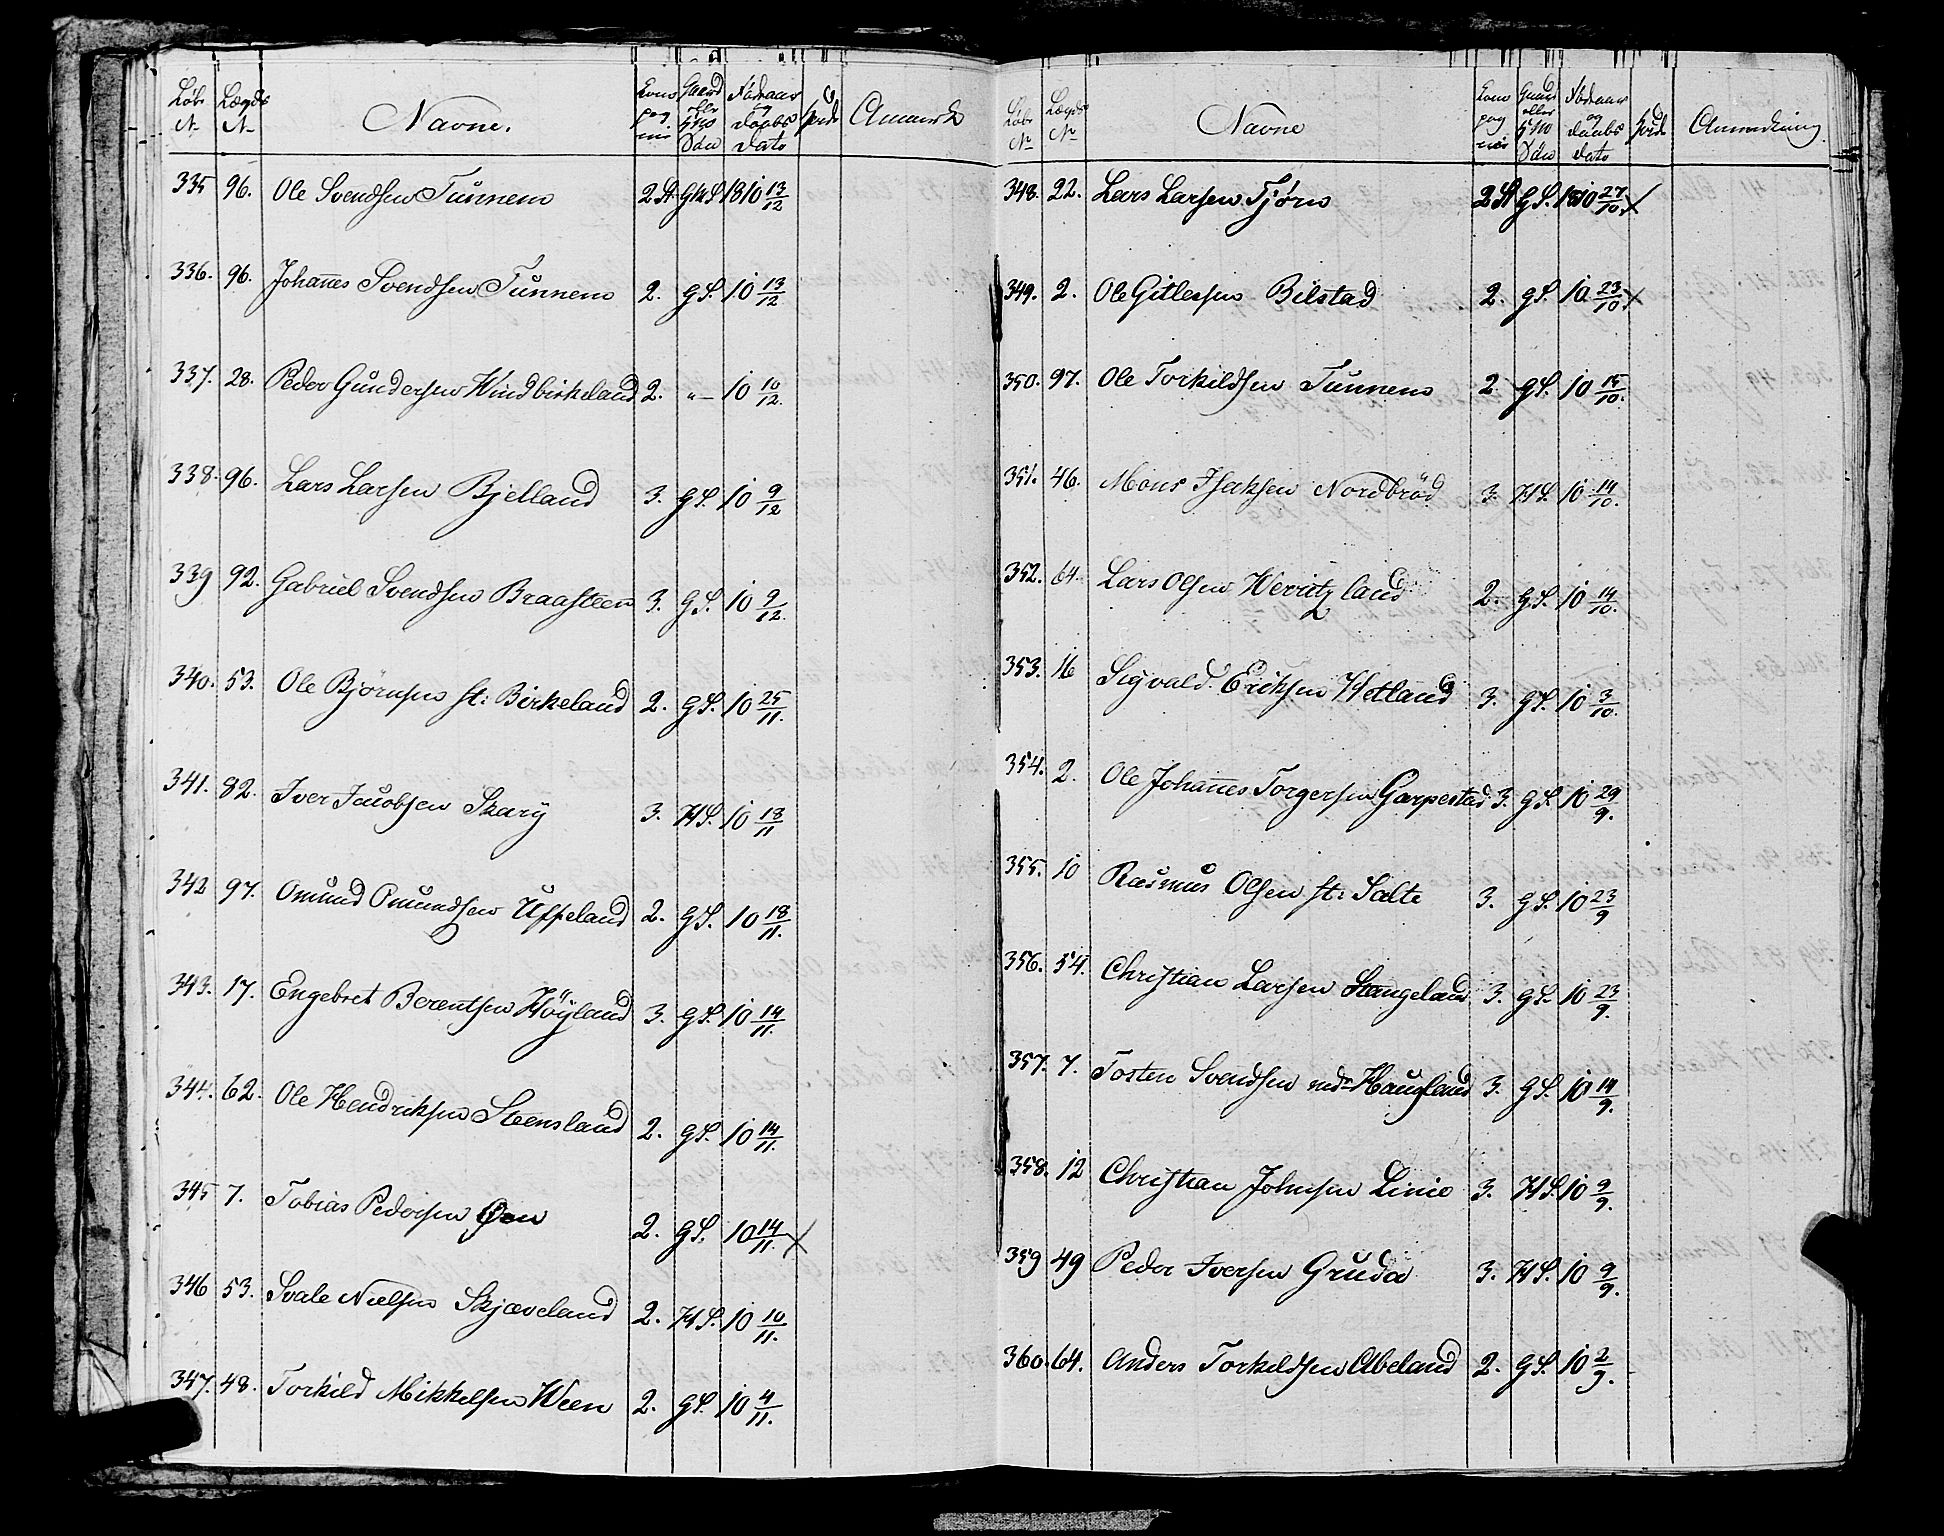 Løb No Lægds No Navne. Kompagnie Gaard eller Hus Søn Fødaar og Daabs Dato Høide Anmærk
335 96. Ole Svendsen Tunnem 2 St GMS 1810 13/12
336. 96. Johanes Svendsen Tunnem 2. GS. 10 13/12
337. 28. Peder Gundersen Windbirkeland 2. "— 10 10/12.
338. 96. Lars Larsen Bjelland 3. GS. 10 9/12
339 92. Gabriel Svendsen Braasteen 3. GS. 10 9/12.
340. 53. Ole Bjørnsen st: Birkeland 2. GS. 10 25/11.
341. 82. Iver Jacobsen Skary 3. HS. 10 18/11
342 97. Omund Omundsen Uppeland 2. GS. 10 18/11.
343. 17. Engebret Berentsen Höyland 3. GS. 10 14/11.
344. 62. Ole Hendriksen Steensland 2. GS. 10 14/11.
345 7. Tobias Pedersen Øen 2. GS. 10 14/11. X
346 53. Svale Nielsen Skjæveland 2. HS. 10 10/11.
347. 48. Torkild Mikkelsen Ween 2. GS. 10 4/11.
Løb No Lægds No Navne Kompagnie Gaard eller Hus Søn Fødaar og Daabs Dato Høide Anmerkning
348. 22. Lars Larsen Tjørn 2 St GS. 1810 27/10. X
349. 2. Ole Gitlessen Bilstad 2. GS. 10. 23/10. X
350. 97. Ole Torkildsen Tunnem 2. GS. 10 15/10.
351. 46. Mons Isaksen Nordbrød 3. HS. 10 14/10.
352. 64. Lars Olsen 2. GS. 10 14/10.
353. 16 Sigvald Eriksen Hetland 3. GS. 10 3/10.
354. 2. Ole Johanes Torgersen Garpestad 3. GS. 10 29/9.
355. 10 Rasmus Olsen st: Salte 3. GS. 10 23/9
356. 54. Christian Larsen Stangeland 3. GS. 10 23/9.
357. 7. Tosten Svendsen nedr Haugland 3. GS. 10 14/9.
358. 12 Christian Johnsen Linie 3. HS. 10 9/9.
359 49 Peder Iversen Gruda 3. HS. 10 9/9.
360. 64. Anders Torkildsen Abeland 2. GS. 10 2/9.